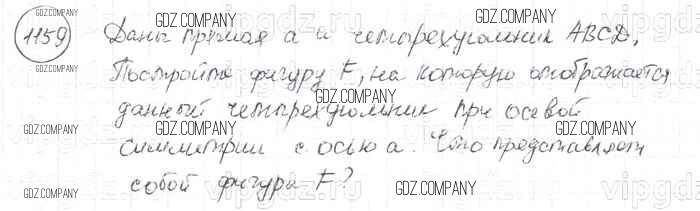 1159 Даны прямая а и четырехугольник ABCD.
Постройте фигуру F, на которую отображается
данный четырехугольник при осевой
симметрии с осью а. Что представляет
собой фигура F?
GDZ.COMPANY
GDZ.COMPANY
GDZ.COMPANY
GDZ.COMPANY
GDZ.COMPANY
GDZ.COMPANY
GDZ.COMPANY
GDZ.COMPANY
vipgdz.ru
vipgdz.ru
vipgdz